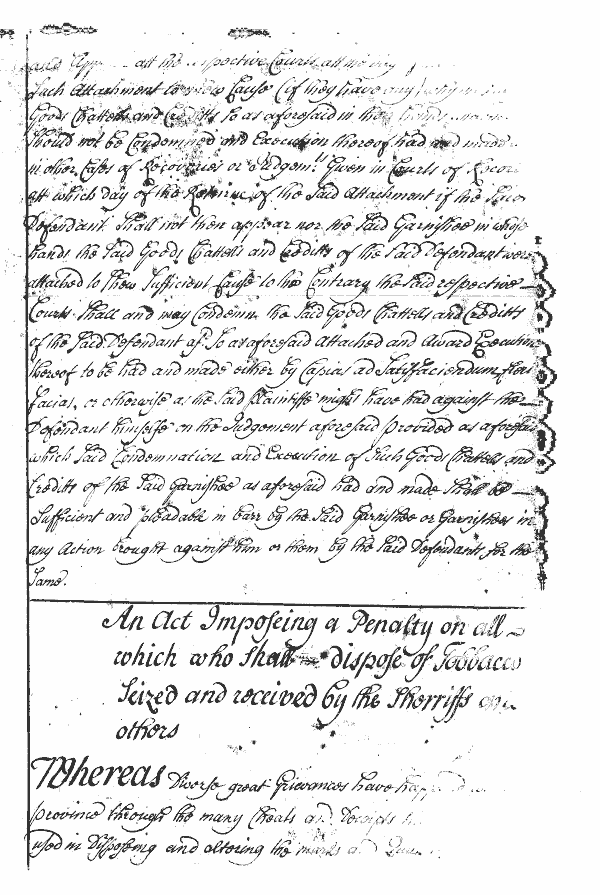 and App at the respective Courts att the day
such Attachment to shew Cause (if they have any) why
Goods Chattells and Creditts so as aforesaid in their hands
should not be Condemned and Execution thereof had and made
in other Cases of Recoveries or Judgem.ts Given in Courts of Recor
att which day of the Returne of the said Attachment if the said
Defendant shall not then appear nor the said Garnishee in whose
hands the said Goods Chattells and Creditts of the said Defendant were
attached to shew sufficient Cause to the Contrary the said respective
Courts shall and may Condemn the said Goods Chattells and Creditts
of the said Defendant so as aforesaid Attached and Award Execution
thereof to be had and made either by Capias ad Satisfaciendum fieri
facias, or otherwise as the said Plaintiffe might have had against the
Defendant himselfe on the Judgement aforesaid provided as aforesaid
which said Condemnation and Execution of such Goods Chattells and
Creditts of the said Garnishee as aforesaid had and made shall be
sufficient and pleadable in barr by the said Garnishee or Garnishees in
any Action brought against him or them by the said Defendants for the
same.
An Act Imposeing a Penalty on all
which who shall dispose of Tobbacco
seized and received by the Sherriffs and
others
Whereas Diverse great Grievances have happ
province through the many Cheats and Deceipts
used in Disposeing and altering the marks